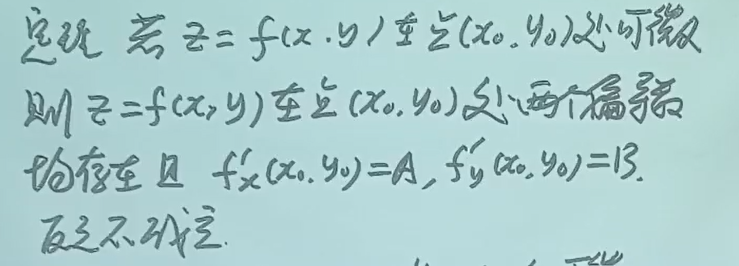 定理 若 z=f(x,y)在点(x₀,y₀)处可微
则 z=f(x,y)在点(x₀,y₀)处两个偏导数
均存在且 f'ₓ(x₀,y₀)=A, f'y(x₀,y₀)=B.
反之不成立.